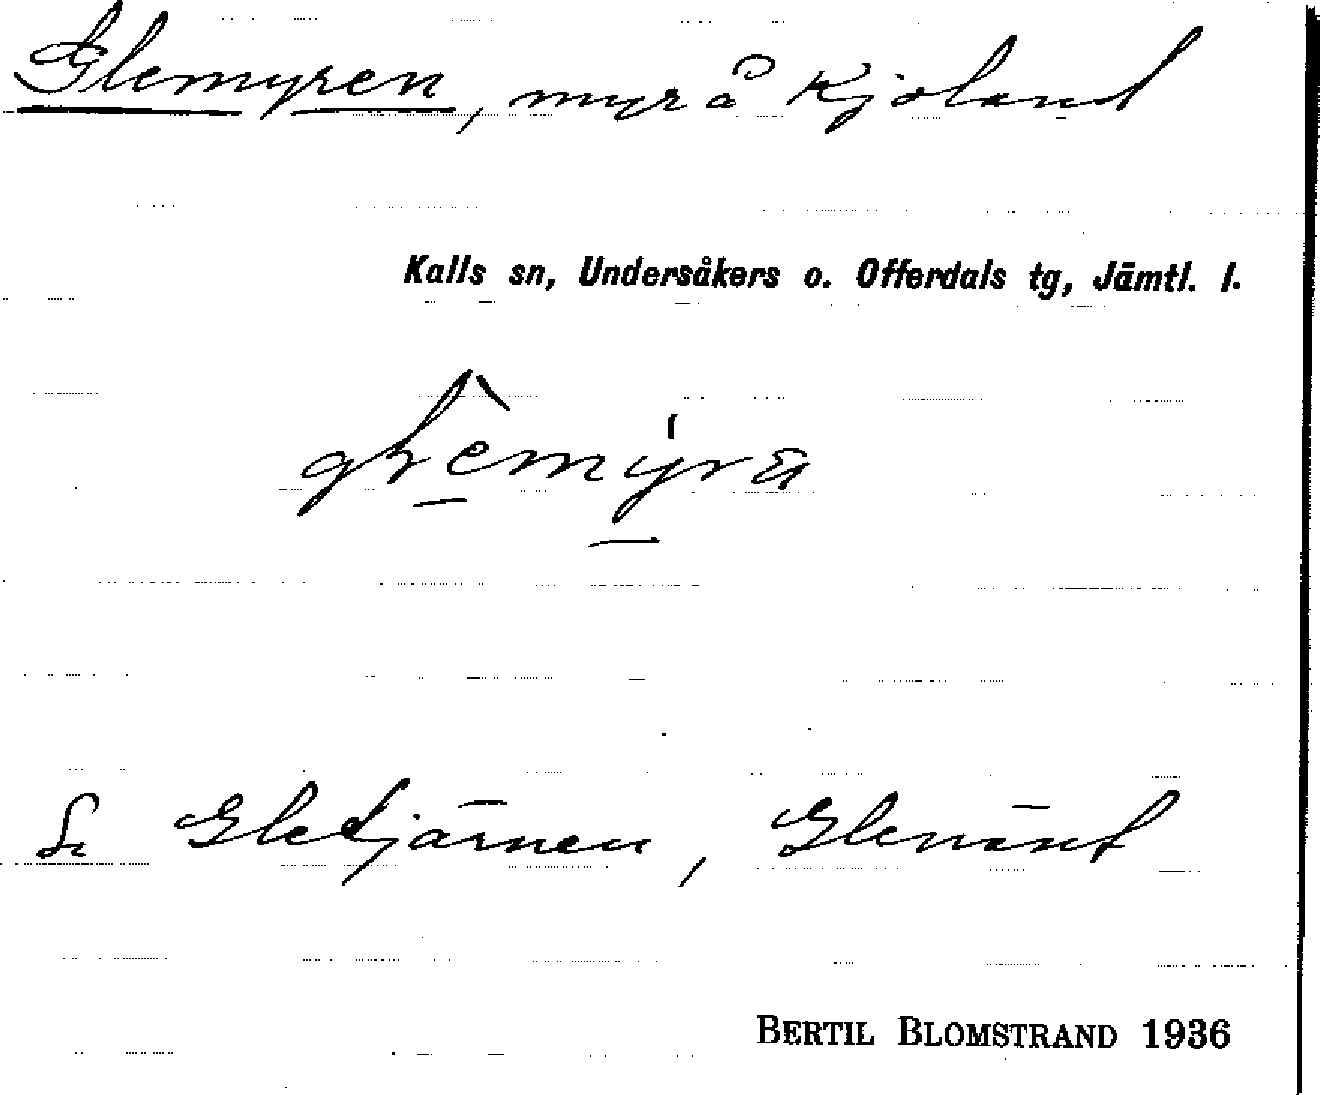 Glemyren, myr å Kjoland
Kalls sn, Undersåkers o. Offerdals tg, Jämtl. l.
Se Gletjärnen, Glenäset
BERTIL BLOMSTRAND 1936